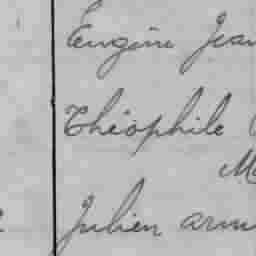 Eugène Jean
Théophile
Julien arm